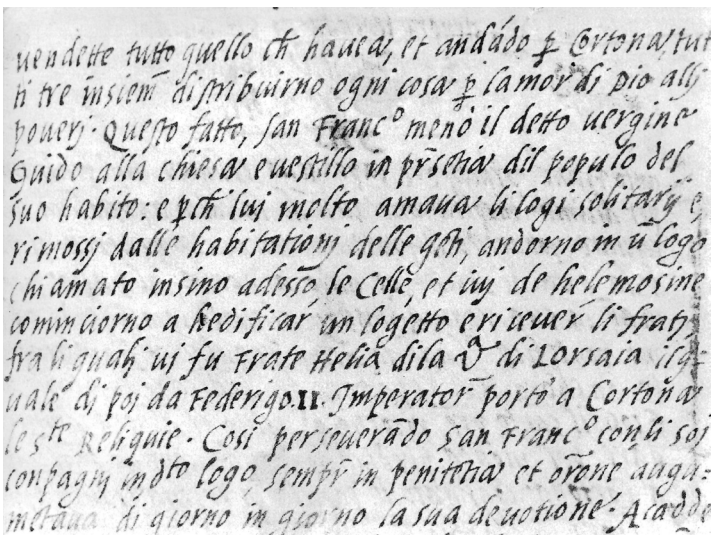 vendette tutto quello ch̃ havea, et andãdo p̱ Cortona, tut
ti tre insiem̃ distribuirno ogni cosa p̱ lamor di Dio alli
poverj. Questo fatto, San Francº menò il detto vergine
Guido alla chiesa e vestillo in pr̃setia dil populo del
suo habito: e p̱ch̃ lui molto amava li logi solitarij e
rimossj dalle habitationj delle gẽti, andorno in ũ logo
chiamato insino adesso, le Celle, et ivj de helemosine
cominciorno a hedificar̃ un logetto e ricever̃ li fratj
fra li qualj vi fu Frate Helia, di la di Lorsaia ilq=
uale di poi da Federigo .II. Imperator̃ portò a Cortona
le sᵗᵉ Reliquie. Così perseverãdo San Francº con li soi
conpagnj in dᵗᵒ logo, sempr̃ in penitẽtia et or̃one augu=
mẽtava di giorno in giorno la sua devotione. Acadde